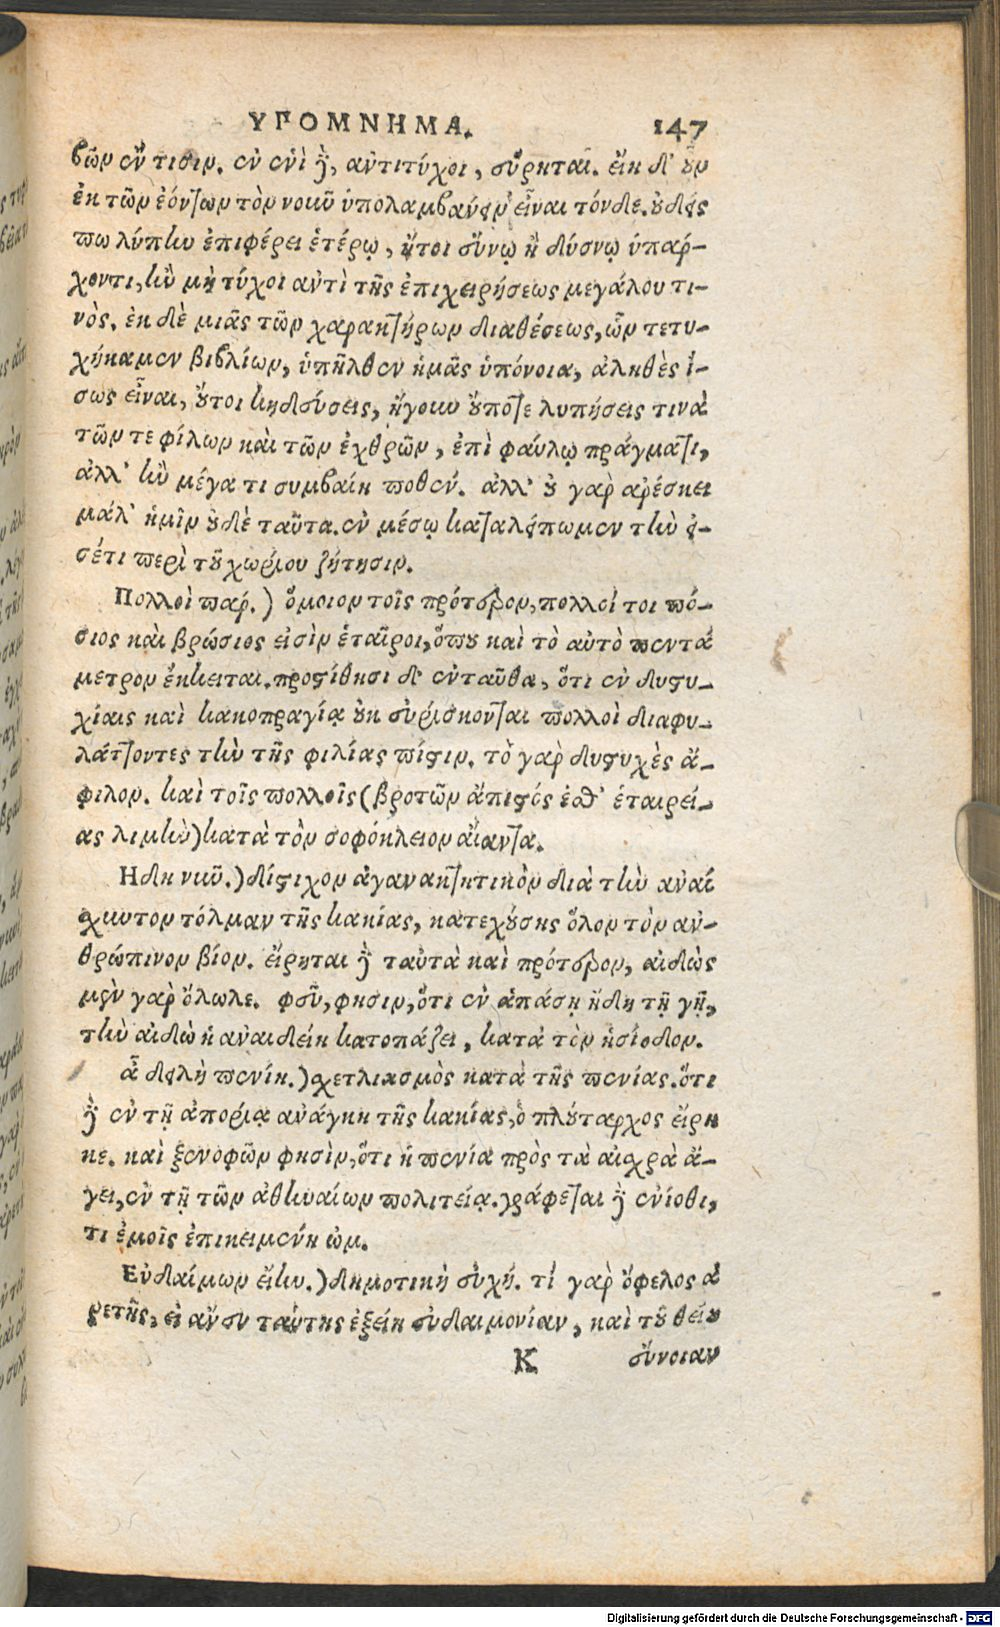 ΥΠΟΜΝΗΜΑ. 147
βῶν ἔν τισιν. ἐν ἑνὶ δὲ, ἀντιτύχοι, εὕρηται. εἴη δ' ἂν
ἐκ τῶν ἐόντων τὸν νοῦν ὑπολαμβάνειν εἶναι τόνδε. οὐδείς
πω λύπην ἐπιφέρει ἑτέρῳ, ἤτοι εὔνῳ ἢ δύσνῳ ὑπάρ-
χοντι, ἢν μὴ τύχοι ἀντὶ τῆς ἐπιχειρήσεως μεγάλου τι-
νὸς. ἐκ δὲ μιᾶς τῶν χαρακτήρων διαθέσεως, ὧν τετυ-
χήκαμεν βιβλίων, ὑπῆλθεν ἡμᾶς ὑπόνοια, ἀληθὲς ἴ-
σως εἶναι, οὔτοι κηδεύσεις, ἤγουν οὔποτε λυπήσεις τινὰ
τῶν τε φίλων καὶ τῶν ἐχθρῶν, ἐπὶ φαύλῳ πράγματι,
ἀλλ' ἢν μέγα τι συμβαίη ποθέν. ἀλλ' οὐ γὰρ ἀρέσκει
μάλ' ἡμῖν οὐδὲ ταῦτα. ἐν μέσῳ καταλείπωμεν τὴν εἰ-
σέτι περὶ τοῦ χωρίου ζήτησιν.
Πολλοὶ παρ.) ὅμοιον τοῖς πρότερον, πολλοί τοι πό-
σιος καὶ βρώσιος εἰσὶν ἑταῖροι, ὅπου καὶ τὸ αὐτὸ πεντά
μετρον ἔκκειται. προστίθησι δ' ἐνταῦθα, ὅτι ἐν δυστυ-
χίαις καὶ κακοπραγίᾳ οὐκ εὑρίσκονται πολλοὶ διαφυ-
λάττοντες τὴν τῆς φιλίας πίστιν. τὸ γὰρ δυστυχὲς ἄ-
φιλον. καὶ τοῖς πολλοῖς (βροτῶν ἄπιστός ἐσθ' ἑταιρεί-
ας λιμὴν) κατὰ τὸν σοφόκλειον αἴαντα.
Ηδη νῦν.) δίστιχον ἀγανακτητικὸν διὰ τὴν ἀναί
σχυντον τόλμαν τῆς κακίας, κατεχούσης ὅλον τὸν ἀν-
θρώπινον βίον. εἴρηται δὲ ταὐτὰ καὶ πρότερον, αἰδὼς
μὲν γὰρ ὄλωλε. φεῦ, φησιν, ὅτι ἐν ἁπάσῃ ἤδη τῇ γῇ,
τὴν αἰδῶ ἡ ἀναιδείη κατοπάζει, κατὰ τὸν ἡσίοδον.
ἆ δειλὴ πενίη.) σχετλιασμὸς κατὰ τῆς πενίας. ὅτι
δὲ ἐν τῇ ἀπορίᾳ ἀνάγκη τῆς κακίας, ὁ πλούταρχος εἴρη
κε. καὶ ξενοφῶν φησὶν, ὅτι ἡ πενία πρὸς τὰ αἰσχρὰ ἄ-
γει, ἐν τῇ τῶν ἀθηναίων πολιτείᾳ. γράφεται δὲ ἐνίοθι,
τι ἐμοῖς ἐπικειμένη ὤμ.
Εὐδαίμων εἴην.) δημοτικὴ εὐχή. τί γὰρ ὄφελος ἀ
ρετῆς, εἰ ἄνευ ταύτης ἐξείη εὐδαιμονίαν, καὶ τοῦ θείου
Κ εὔνοιαν
Digitalisierung gefördert durch die Deutsche Forschungsgemeinschaft - DFG